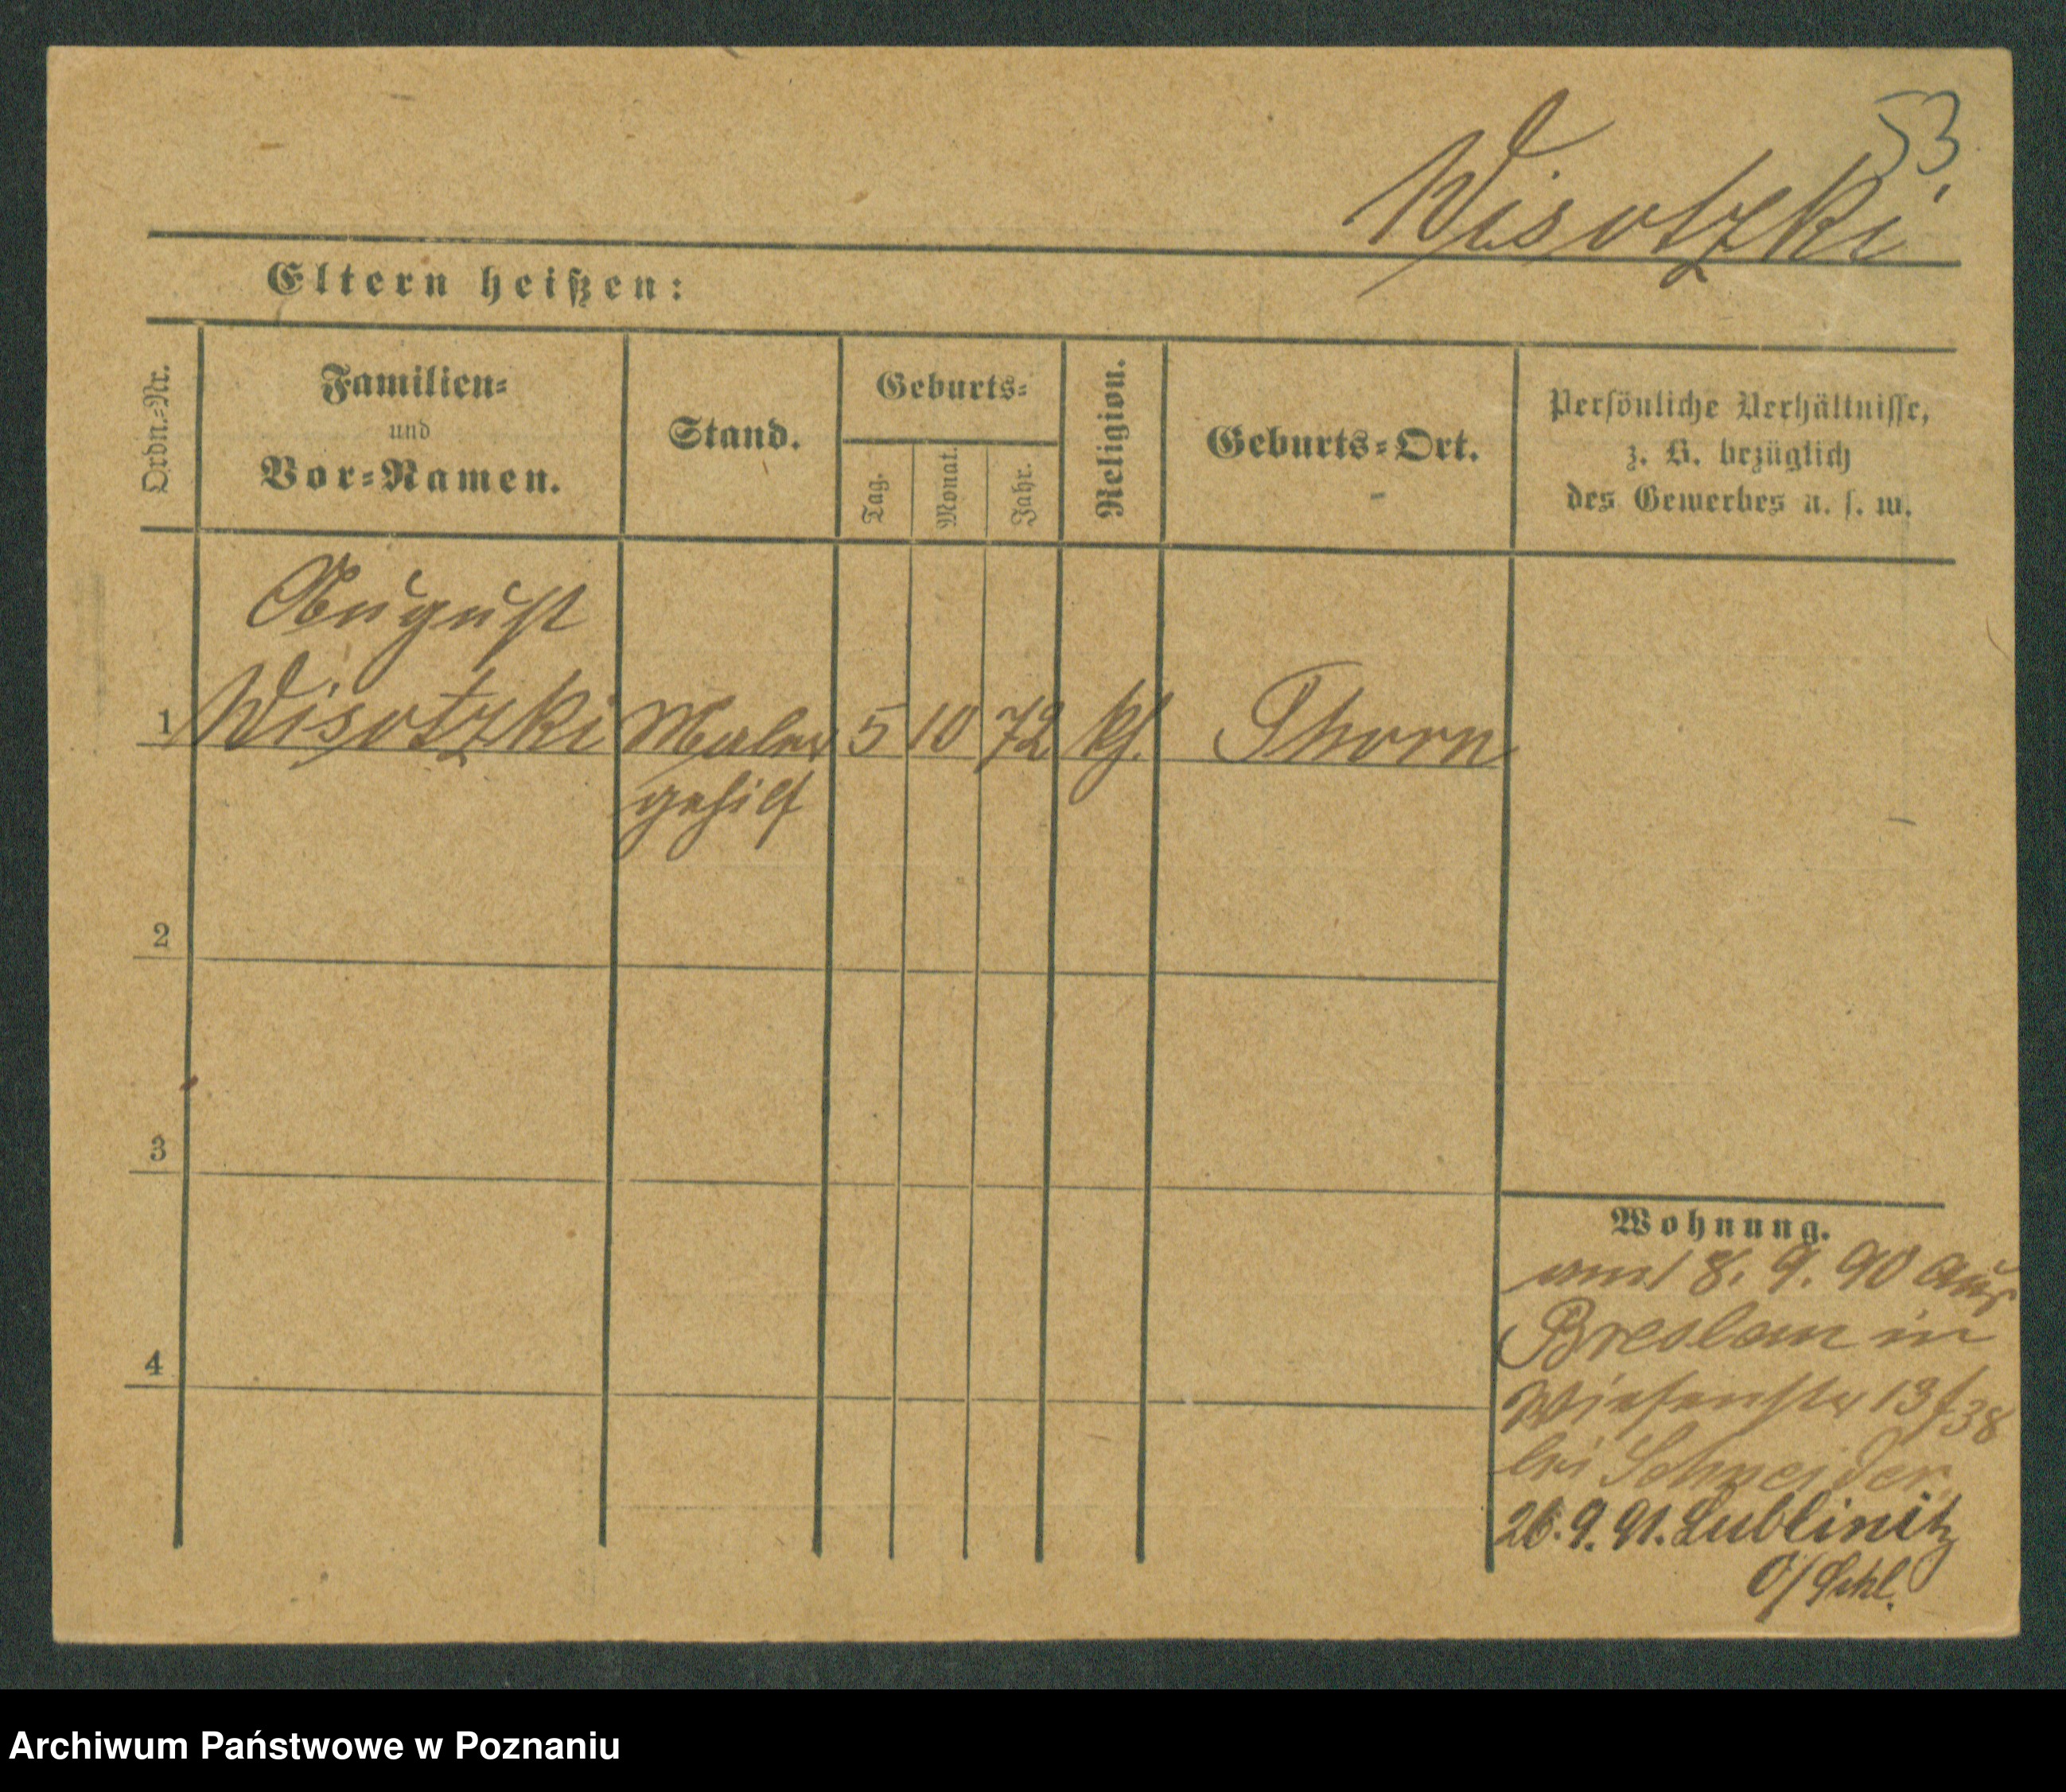 53
Wisotzki
Eltern heißen:
Ordn.=Nr.
Familien=
und
Vor=Namen.
Stand.
Geburts=
Tag.
Monat.
Jahr.
Religion.
Geburts=Ort.
Persönliche Verhältnisse,
z. B. bezüglich
des Gewerbes u. s. w.
August
1 Wisotzki Maler 5 10 72 kth. Thorn
gehilf
2
3
4
Wohnung.
8. 9. 90 aus
Breslau in
Wiesenstr 13/38
bei Schneider.
26. 9. 91. Lublinitz
O/Schl.
Archiwum Państwowe w Poznaniu